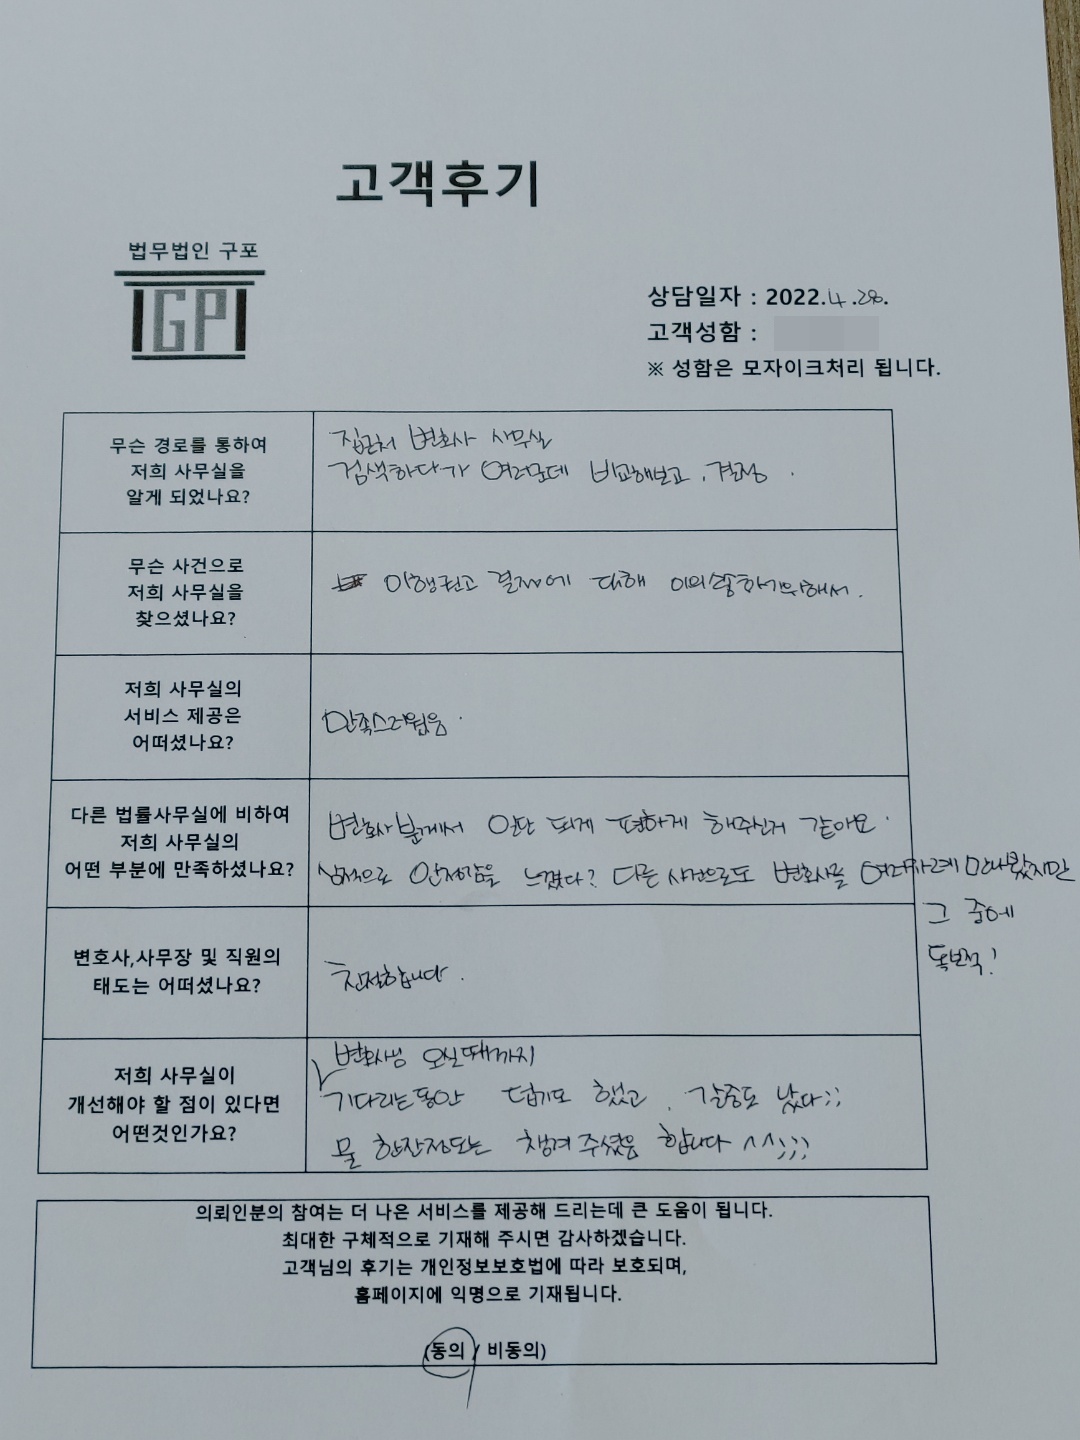 고객후기
법무법인 구포
IGPI
상담일자 : 2022.4.28.
고객성함 :
※ 성함은 모자이크처리 됩니다.
무슨 경로를 통하여
저희 사무실을
알게 되었나요?
집근처 변호사 사무실
검색하다가 여러군데 비교해보고, 결정.
무슨 사건으로
저희 사무실을
찾으셨나요?
이행권고 결정에 대해 이의 송하기위해서.
저희 사무실의
서비스 제공은
어떠셨나요?
만족스러웠음.
다른 법률사무실에 비하여
저희 사무실의
어떤 부분에 만족하셨나요?
변호사분께서 일단 되게 편하게 해주신거 같아요.
심적으로 안정감을 느꼈다? 다른 사건으로도 변호사를 여러차례 만나봤지만
그 중에
독보적!
변호사,사무장 및 직원의
태도는 어떠셨나요?
친절합니다.
저희 사무실이
개선해야 할 점이 있다면
어떤것인가요?
변호사님 오실때까지
기다리는동안 덥기도 했고, 갈증도 났다;;
물 한잔정도는 챙겨 주셨음 합니다 ^^;;;
의뢰인분의 참여는 더 나은 서비스를 제공해 드리는데 큰 도움이 됩니다.
최대한 구체적으로 기재해 주시면 감사하겠습니다.
고객님의 후기는 개인정보보호법에 따라 보호되며,
홈페이지에 익명으로 기재됩니다.
(동의 / 비동의)